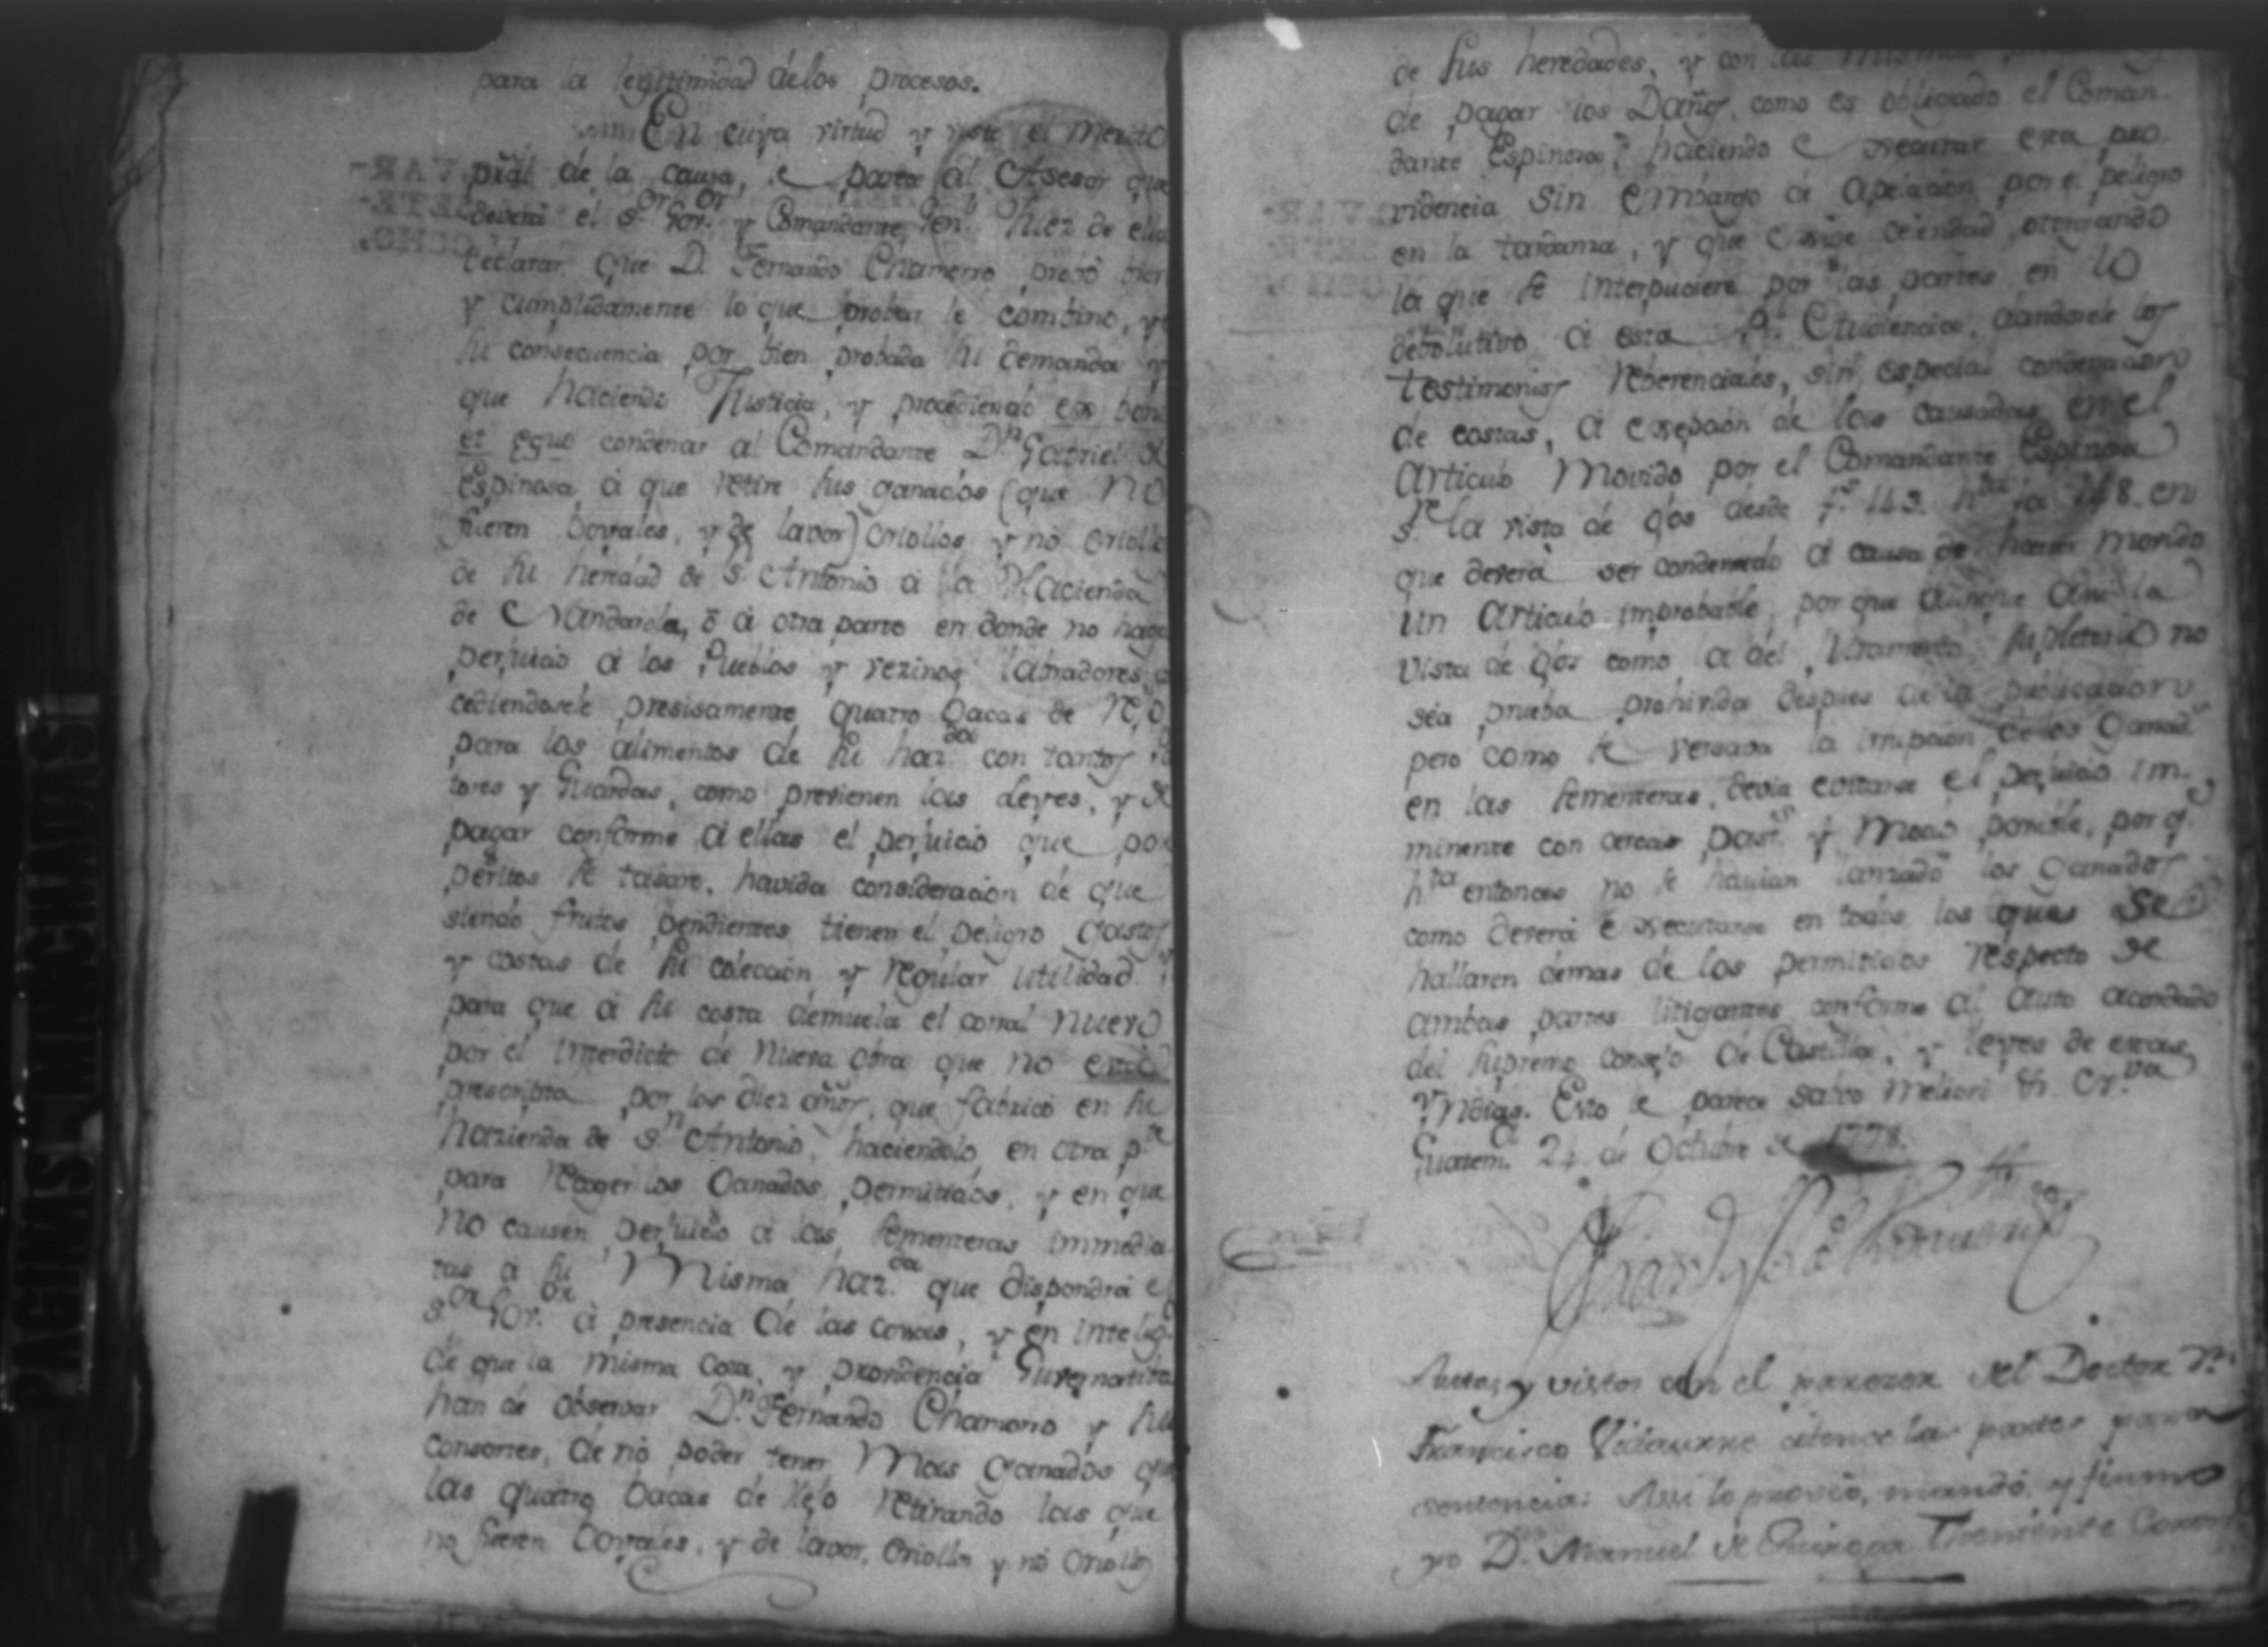 para la legitimidad delos procesos.
En cuya virtud y visto el merito
pral de la causa, le parece al Asesor que
deverá el S.or Gov.or y Comandante Gen.l Juez de ella
declarar que D. Fernando Chamorro probó bien
y cumplidamente lo que probar le combino, y
su consecuencia por bien probada su demanda y
que haciendo Justicia, y procediendo ex bono
et equo condenar al Comandante D.n Gabriel de
Espinosa á que retire sus ganados (que no
fueren boyales, y de lavor) criollos y no criollos
de su heredad de S.n Antonio á la Hacienda
de Nandarola, ó á otra parte en donde no haga
perjuicio á los Pueblos y vezinos labradores,
cediendosele presisamente quatro bacas de
para los alimentos de su haz.da con tantos
tores y Guardas, como previenen las Leyes, y de
pagar conforme á ellas el perjuicio que por
peritos se tasare, havida consideracion de que
siendo frutos pendientes tienen el peligro gastos
y costas de su coleccion, y regular utilidad.
para que á su costa demuela el corral nuevo
por el interdicto de nueva obra que no está
prescripta por los diez años, que fabricó en su
hazienda de S.n Antonio, haciendolo en otra p.te
para recoger los Ganados permitidos, y en que
no causen perjuicio á las sementeras immedia
tas á su Misma haz.da que dispondrá el
S.or Gov.or á presencia de las cosas, y en intelig.
de que la misma cosa, y providencia Guvernativa
han de observar D.n Fernando Chamorro y su
consortes, de no poder tener Mas ganados que
las quatro bacas de Rejo retirando los que
no fueren boyales, y de lavor, criollos y no criollos
de sus heredades, y con las mismas
de pagar los Daños, como es obligado el Coman-
dante Espinosa, haciendo executar esta pro
videncia sin embargo de apelacion por el peligro
en la tardanza, y que exige celeridad otorgando
la que se interpusiere por las partes en lo
debolutivo á esta R.l Audiencia, dandosele los
testimonios reberenciales, sin especial condenacion
de costas, á excepcion de las causadas en el
articulo Movido por el Comandante Espinosa
s.re la vista de ojos desde f.s 143. h.ta la 148. en
que deverá ser condenado á causa de haver movido
un articulo improbable, por que aunque assi la
vista de ojos como la del Juramento supletorio no
sea prueba prohivida despues de la publicacion
pero como se versava la irrupcion de los Ganad.s
en las sementeras, devia evitarse el perjuicio im-
minente con cercas y Modo posible, por q.e
h.ta entonces no se havian lanzado los ganados
como deverá executarse en todos los ques se
hallaren demas de los permitidos respecto de
ambas partes litigantes conforme al auto acordado
del supremo consejo de Castilla, y leyes de estas
Yndias. Esto le parece salvo meliori
Guatem.a 24. de Octubre de 1778.
Autos, y vistos con el parecer del Doctor D.n
Francisco Vidaurre citence las partes para
sentencia: Assi lo proveió, mandó, y firmó
yo D.n Manuel de Quiroga Theniente Coro